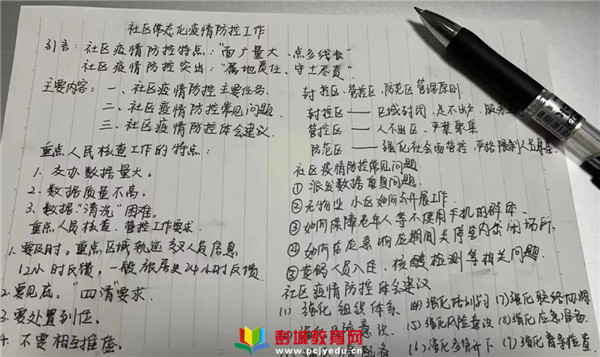 社区常态化疫情防控工作
引言：社区疫情防控特点："面广量大、点多线长"
社区疫情防控突出："属地责任、守土尽责"
主要内容：一、社区疫情防控主要任务.
二、社区疫情防控常见问题
三、社区疫情防控体会建议
重点人民核查工作的特点：
1. 交办数据量大。
2. 数据质量不高。
3. 数据"清洗"困难。
重点人员核查、管控工作要求
1.要及时。重点区域轨迹交叉人员信息
12小时反馈，一般旅居史24小时反馈
2.要见底。"四清"要求
3.要处置到位。
4. 不要相互推诿
封控区、管控区、防范区管理原则
封控区——区域封闭、足不出户、服务上
管控区——人不出区、严禁聚集
防范区——强化社会面管控，严格限制人员
社区疫情防控常见问题
①派发数据重复问题.
②无物业小区如何开展工作.
③如何保障老年人等不使用手机的群体.
④如何在应急响应期间关停室内密闭场所.
⑤人员入区、核酸检测等相关问题.
社区疫情防控体会建议
(1) 强化组织体系
(4)强化培训
(7)强化联络协调
意识
(5)强化风险意识
(8)强化应急准备
准备
(6)强化
(9)强化督导检查
彭城教育网
www.pcjyedu.cn